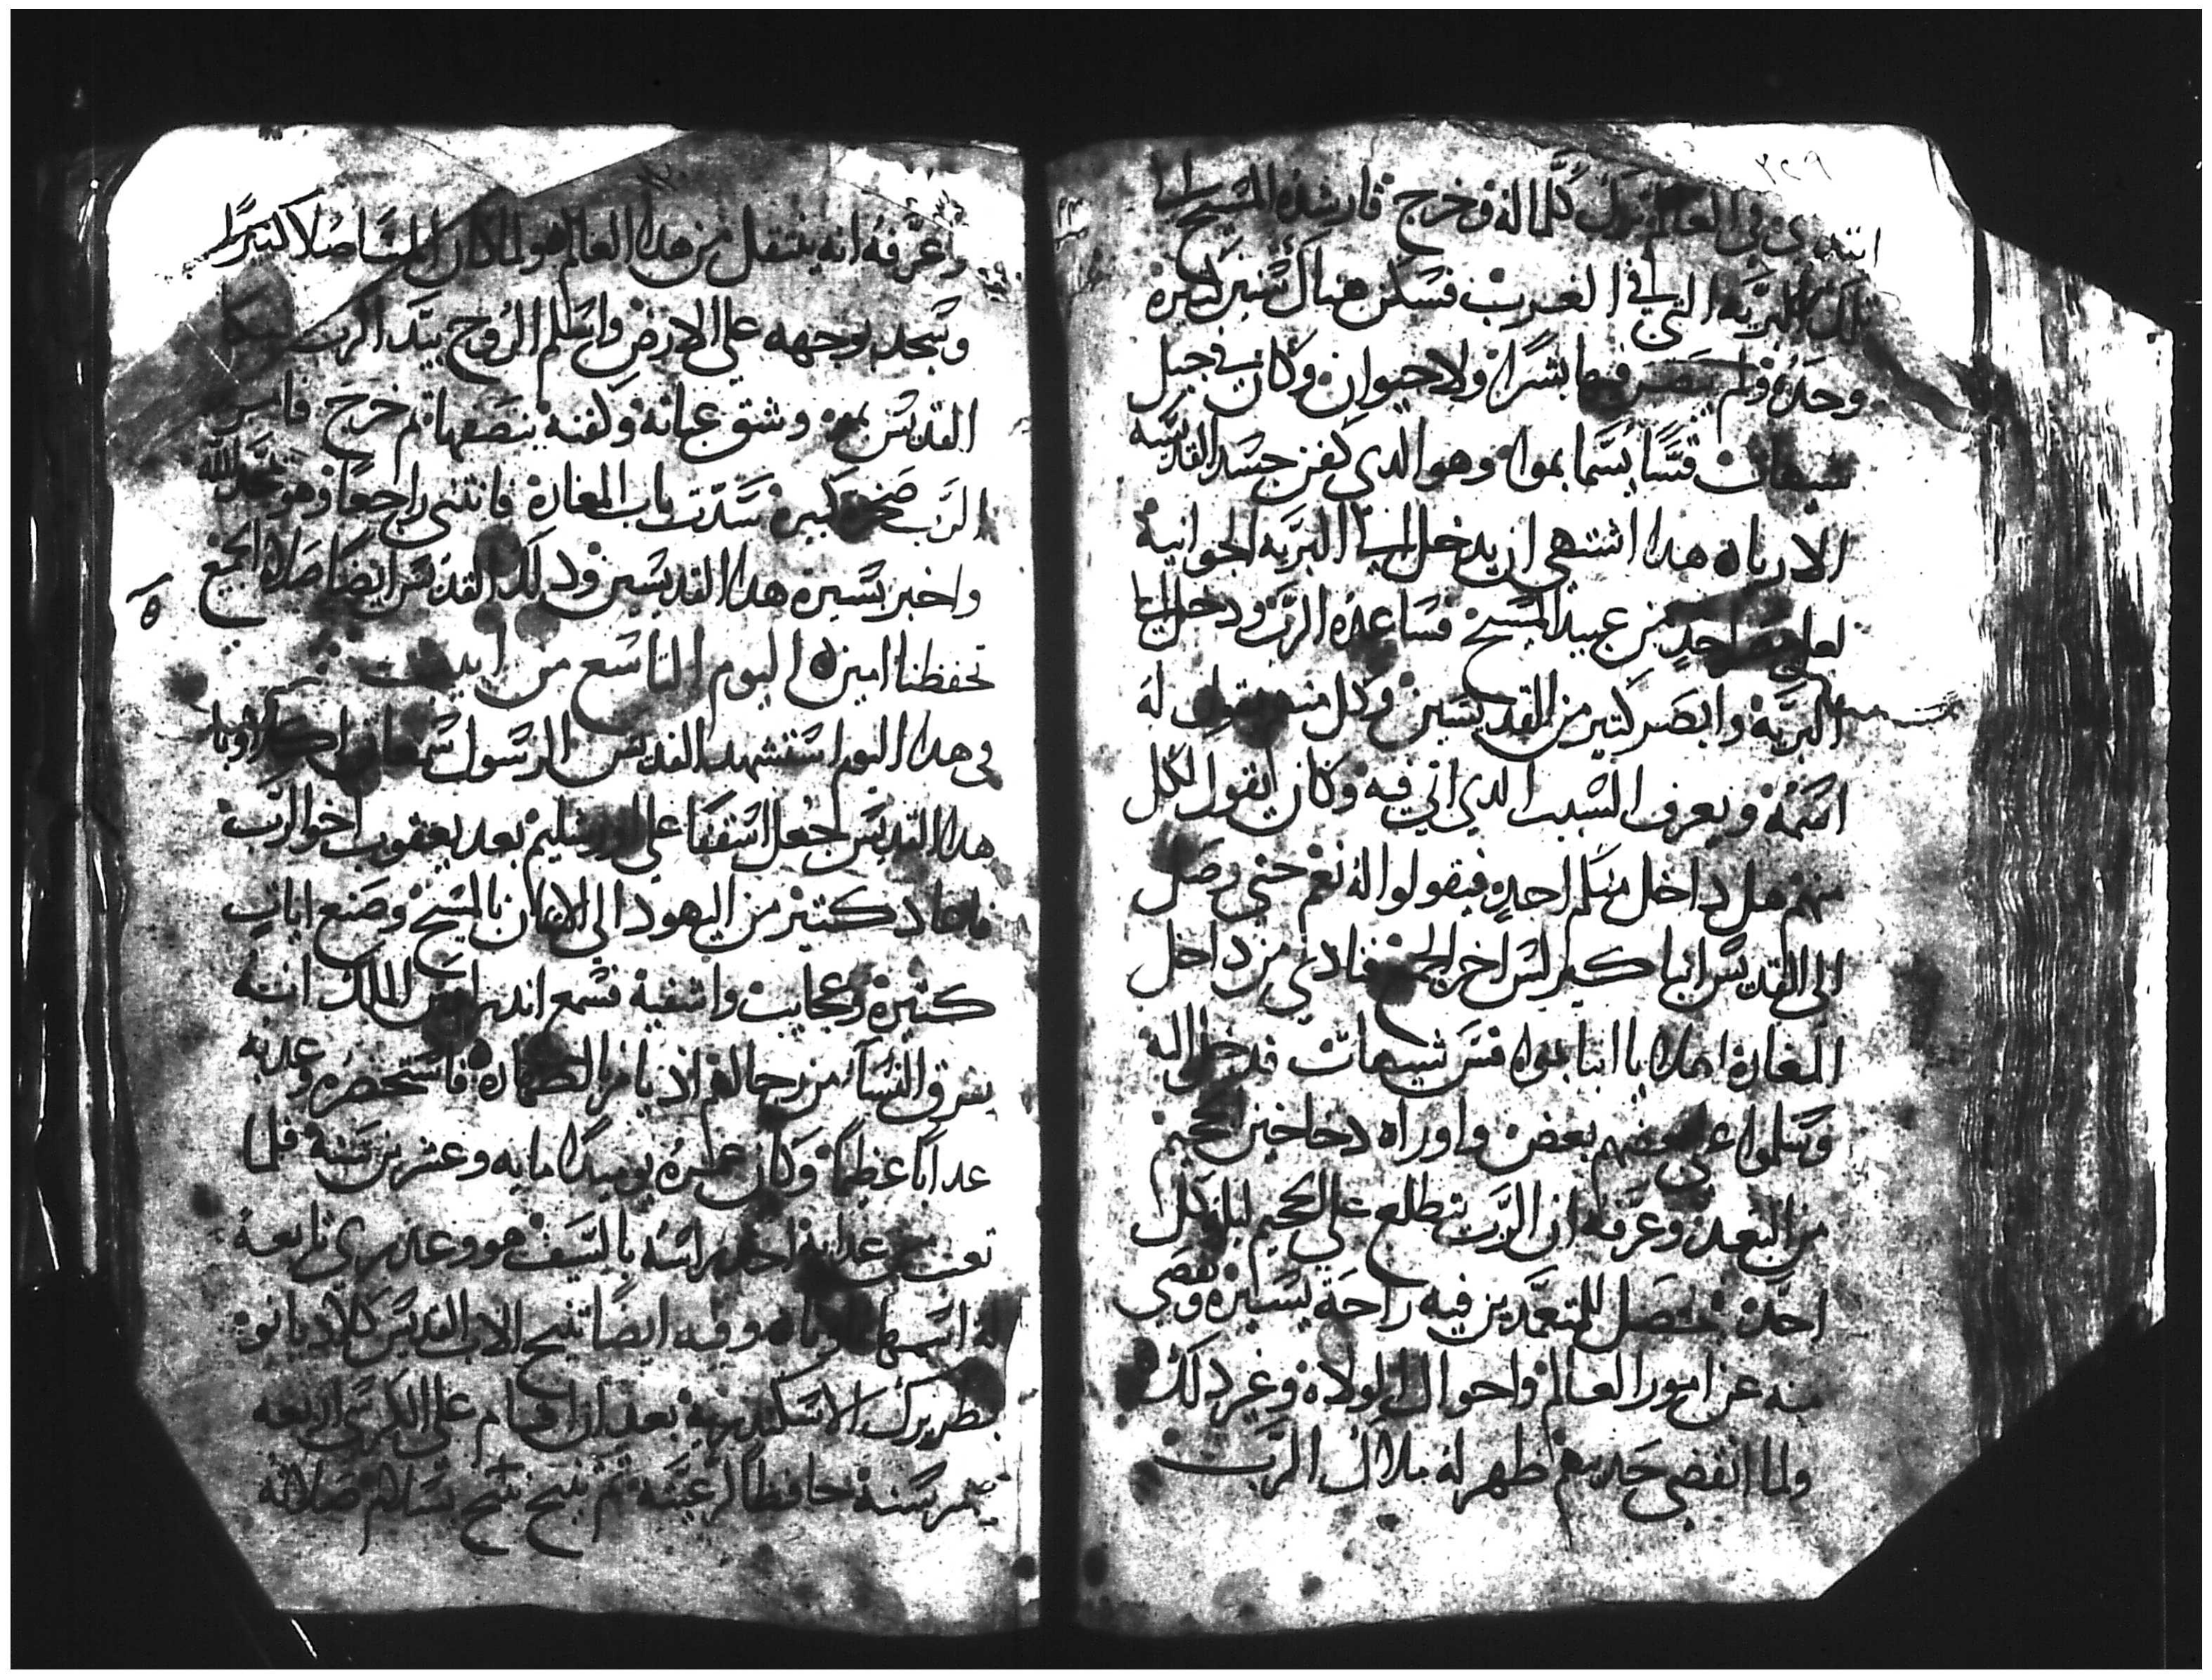 ٣٢٩
في العالم ترك كلما له وخرج فارشده المسيح الى
تلك البريه التي في الغرب فسكن هناك سنين كثيره
وحده ولم يبصر فيها بشرا ولا حيوان وكان في جبل
شيهات قسا يسما بموا وهو الدي كفن جسد القديسه
الاريا هدا اشتهي ان يدخل الي البريه الجوانية
احد من عبيد المسيح فساعده الرب ودخل الي
البرية وابصر كتير من القديسين وكل منهم يقول له
اسمه ويعرفه السبب الدي اتي فيه وكان يقول لكل
منهم هل داخل منكم احد فيقولوا له نعم حتي وصل
الى القديس انبا كير ليس اخر الجميع فنادي من داخل
المغارة اهلا يا انبا بموا قس شيهات فدخل اليه
وسلموا على بعضهم بعض واوراه دخاخين الجحيم
من البعد وعرفه ان الرب يتطلع علي الجحيم ليلة كل
احد فتحصل للمتعمدين فيه راحة يسيره وتقصي
منه عن امور العالم واحوال الولاه وغير دلك
ولما انقضي حديتهم ظهر له ملاك الرب
وعرفه انه ينتقل من هدا العالم هو
وسجد بوجهه على الارض واسلم الروح بيد الرب
القديس بموا وشق عباته وكفنه بنصفها تم خرج
الرب صخره كبيره سدت باب المغارة فانتني راجعا وهو يمجد الله
واخبر بسيره هدا القديسين ودلك القديس ايضا صلاه الجميع
تحفظنا امين ه اليوم التاسع من ابيب
في هدا اليوم استشهد القديس الرسول سمعان اكلاوبا
هدا القديس جعل اسقفا على اورشليم بعد يعقوب اخو الرب
فاعاد كتير من اليهود الي الايمان بالمسيح وصنع ايات
كتيره وعجايب واشفية فسمع اندريانوس الملك انه
يفرق النساء من رجالهم اد يامر بالطهاره فاستحضره وعدبه
عدابا عظيما وكان عمره يوميدا مايه وعشرين سنة فلما
تعب من عدابه احد راسه بالسيف هو وعدري تابعة
له اسمها تاوناه وفيه ايضا تنيح الاب القديس كلاديانوا
بطريرك الاسكندريه بعد ان اقام علي الكرسي اربعه
عشر سنة حافظا لرعيته تم تنيح تنيح بسلام صلاته